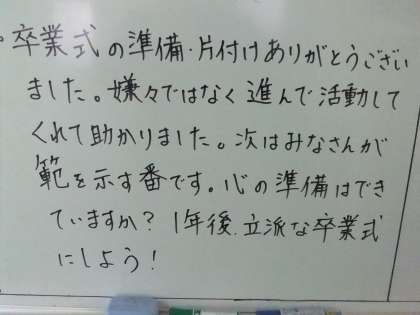 ・卒業式の準備・片付けありがとうござい
ました。嫌々ではなく進んで活動して
くれて助かりました。次はみなさんが
範を示す番です。心の準備はでき
ていますか？1年後、立派な卒業式
にしよう！